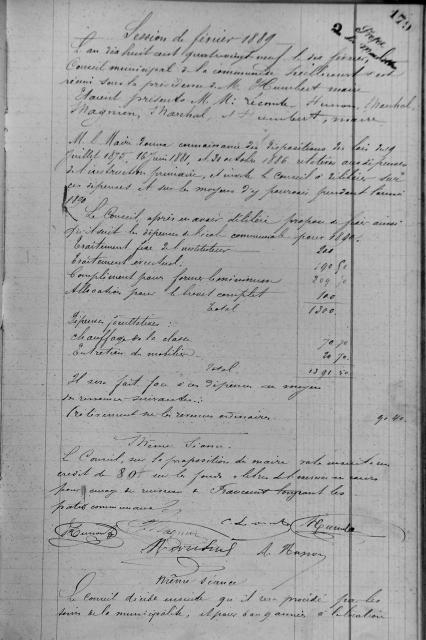 179
Session de février 1889
L'an dix huit cent quatre vingt neuf, le dix février,
Conseil municipal de la commune de s'est
réuni sous la présidence de M. Humbert maire
Etaient présents M.M. Marchal,
Magnien, Marchal, et Humbert, maire
M. le Maire donne connaissance des dispositions des lois du 19
juillet 1875, 16 juin 1881, et 30 octobre 1886 relatives aux dépenses
de l'instruction primaire, et invite le Conseil à délibérer sur
ces dépenses et sur les moyens d'y pourvoir pendant l'année
1890.
Le Conseil, après en avoir délibéré propose de fixer ainsi
qu'il suit les dépenses de l'école communale pour 1890.
Traitement fixe de l'instituteur 200
Traitement éventuel. 190 50
Complément pour former le minimum 209 50
Allocation pour le brevet complet 100
Total 1300
Dépenses facultatives :
Chauffage de la classe 70 70
Entretien du mobilier 20 70
Total 1391 50
Il sera fait face à ces dépenses au moyen
des ressources suivantes :
Prélèvement sur les revenus ordinaires 90 40
Même Séance
Le Conseil, sur la proposition du maire vote ensuite un
crédit de 80f sur les fonds libres de l'exercice en cours
pour curage du ruisseau de longeant les
patis communaux
Même séance
Le Conseil décide ensuite qu'il sera procédé par les
soins de la municipalité, et pour années à la location